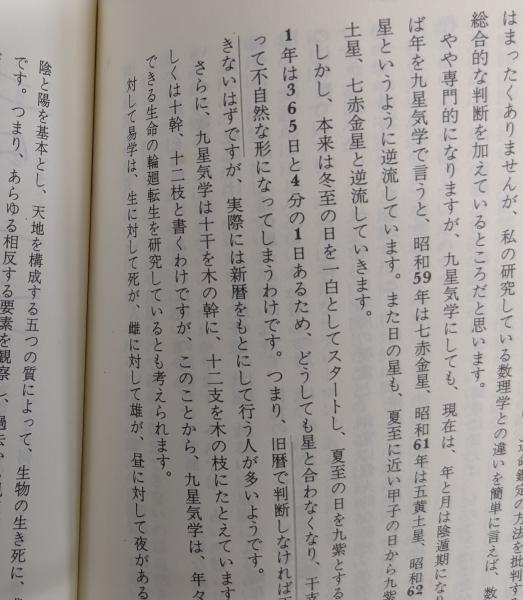 運命鑑定の方法を批判する
はまったくありませんが、私の研究している数理学との違いを簡単に言えば、数
総合的な判断を加えているところだと思います。
やや専門的になりますが、九星気学にしても、現在は、年と月は陰遁期にな
ば年を九星気学で言うと、昭和59年は七赤金星、昭和61年は五黄土星、昭和62
星というように逆流しています。また日の星も、夏至に近い甲子の日から九紫
土星、七赤金星と逆流していきます。
しかし、本来は冬至の日を一白としてスタートし、夏至の日を九紫とする
1年は365日と4分の1日あるため、どうしても星と合わなくなり、干支
って不自然な形になってしまうわけです。つまり、旧暦で判断しなければ
きないはずですが、実際には新暦をもとにして行う人が多いようです。
さらに、九星気学は十干を木の幹に、十二支を木の枝にたとえています
しくは十幹、十二枝と書くわけですが、このことから、九星気学は、年々
できる生命の輪廻転生を研究しているとも考えられます。
対して易学は、生に対して死が、雌に対して雄が、昼に対して夜がある
陰と陽を基本とし、天地を構成する五つの質によって、生物の生き死に、
です。つまり、あらゆる相反する要素を観察し、過去から